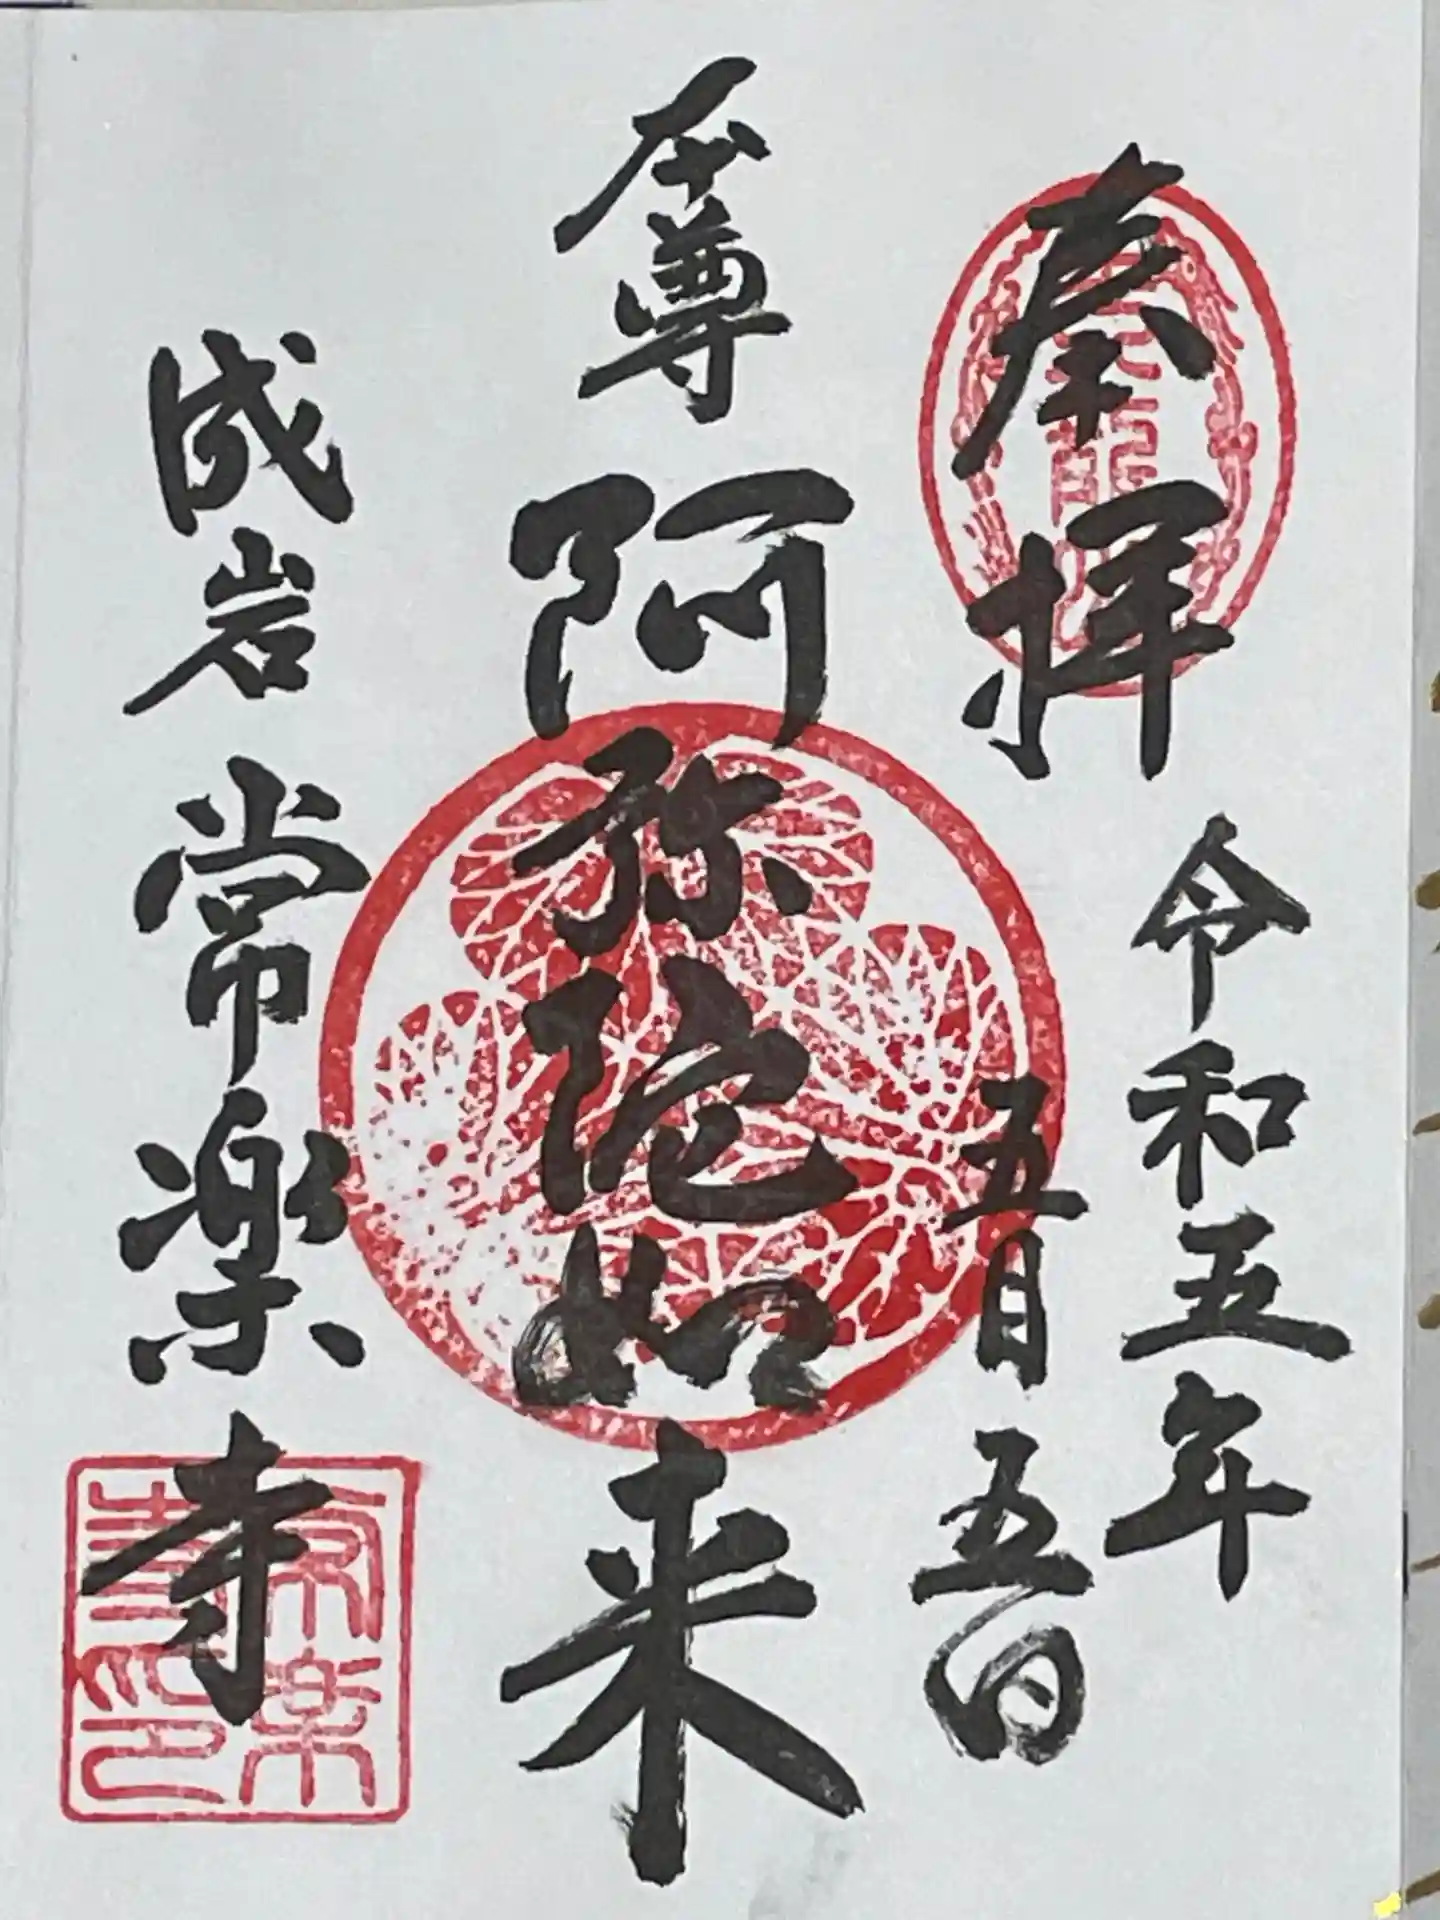 奉拝
令和五年
五月五日
本尊
阿弥陀如来
成岩
常楽寺